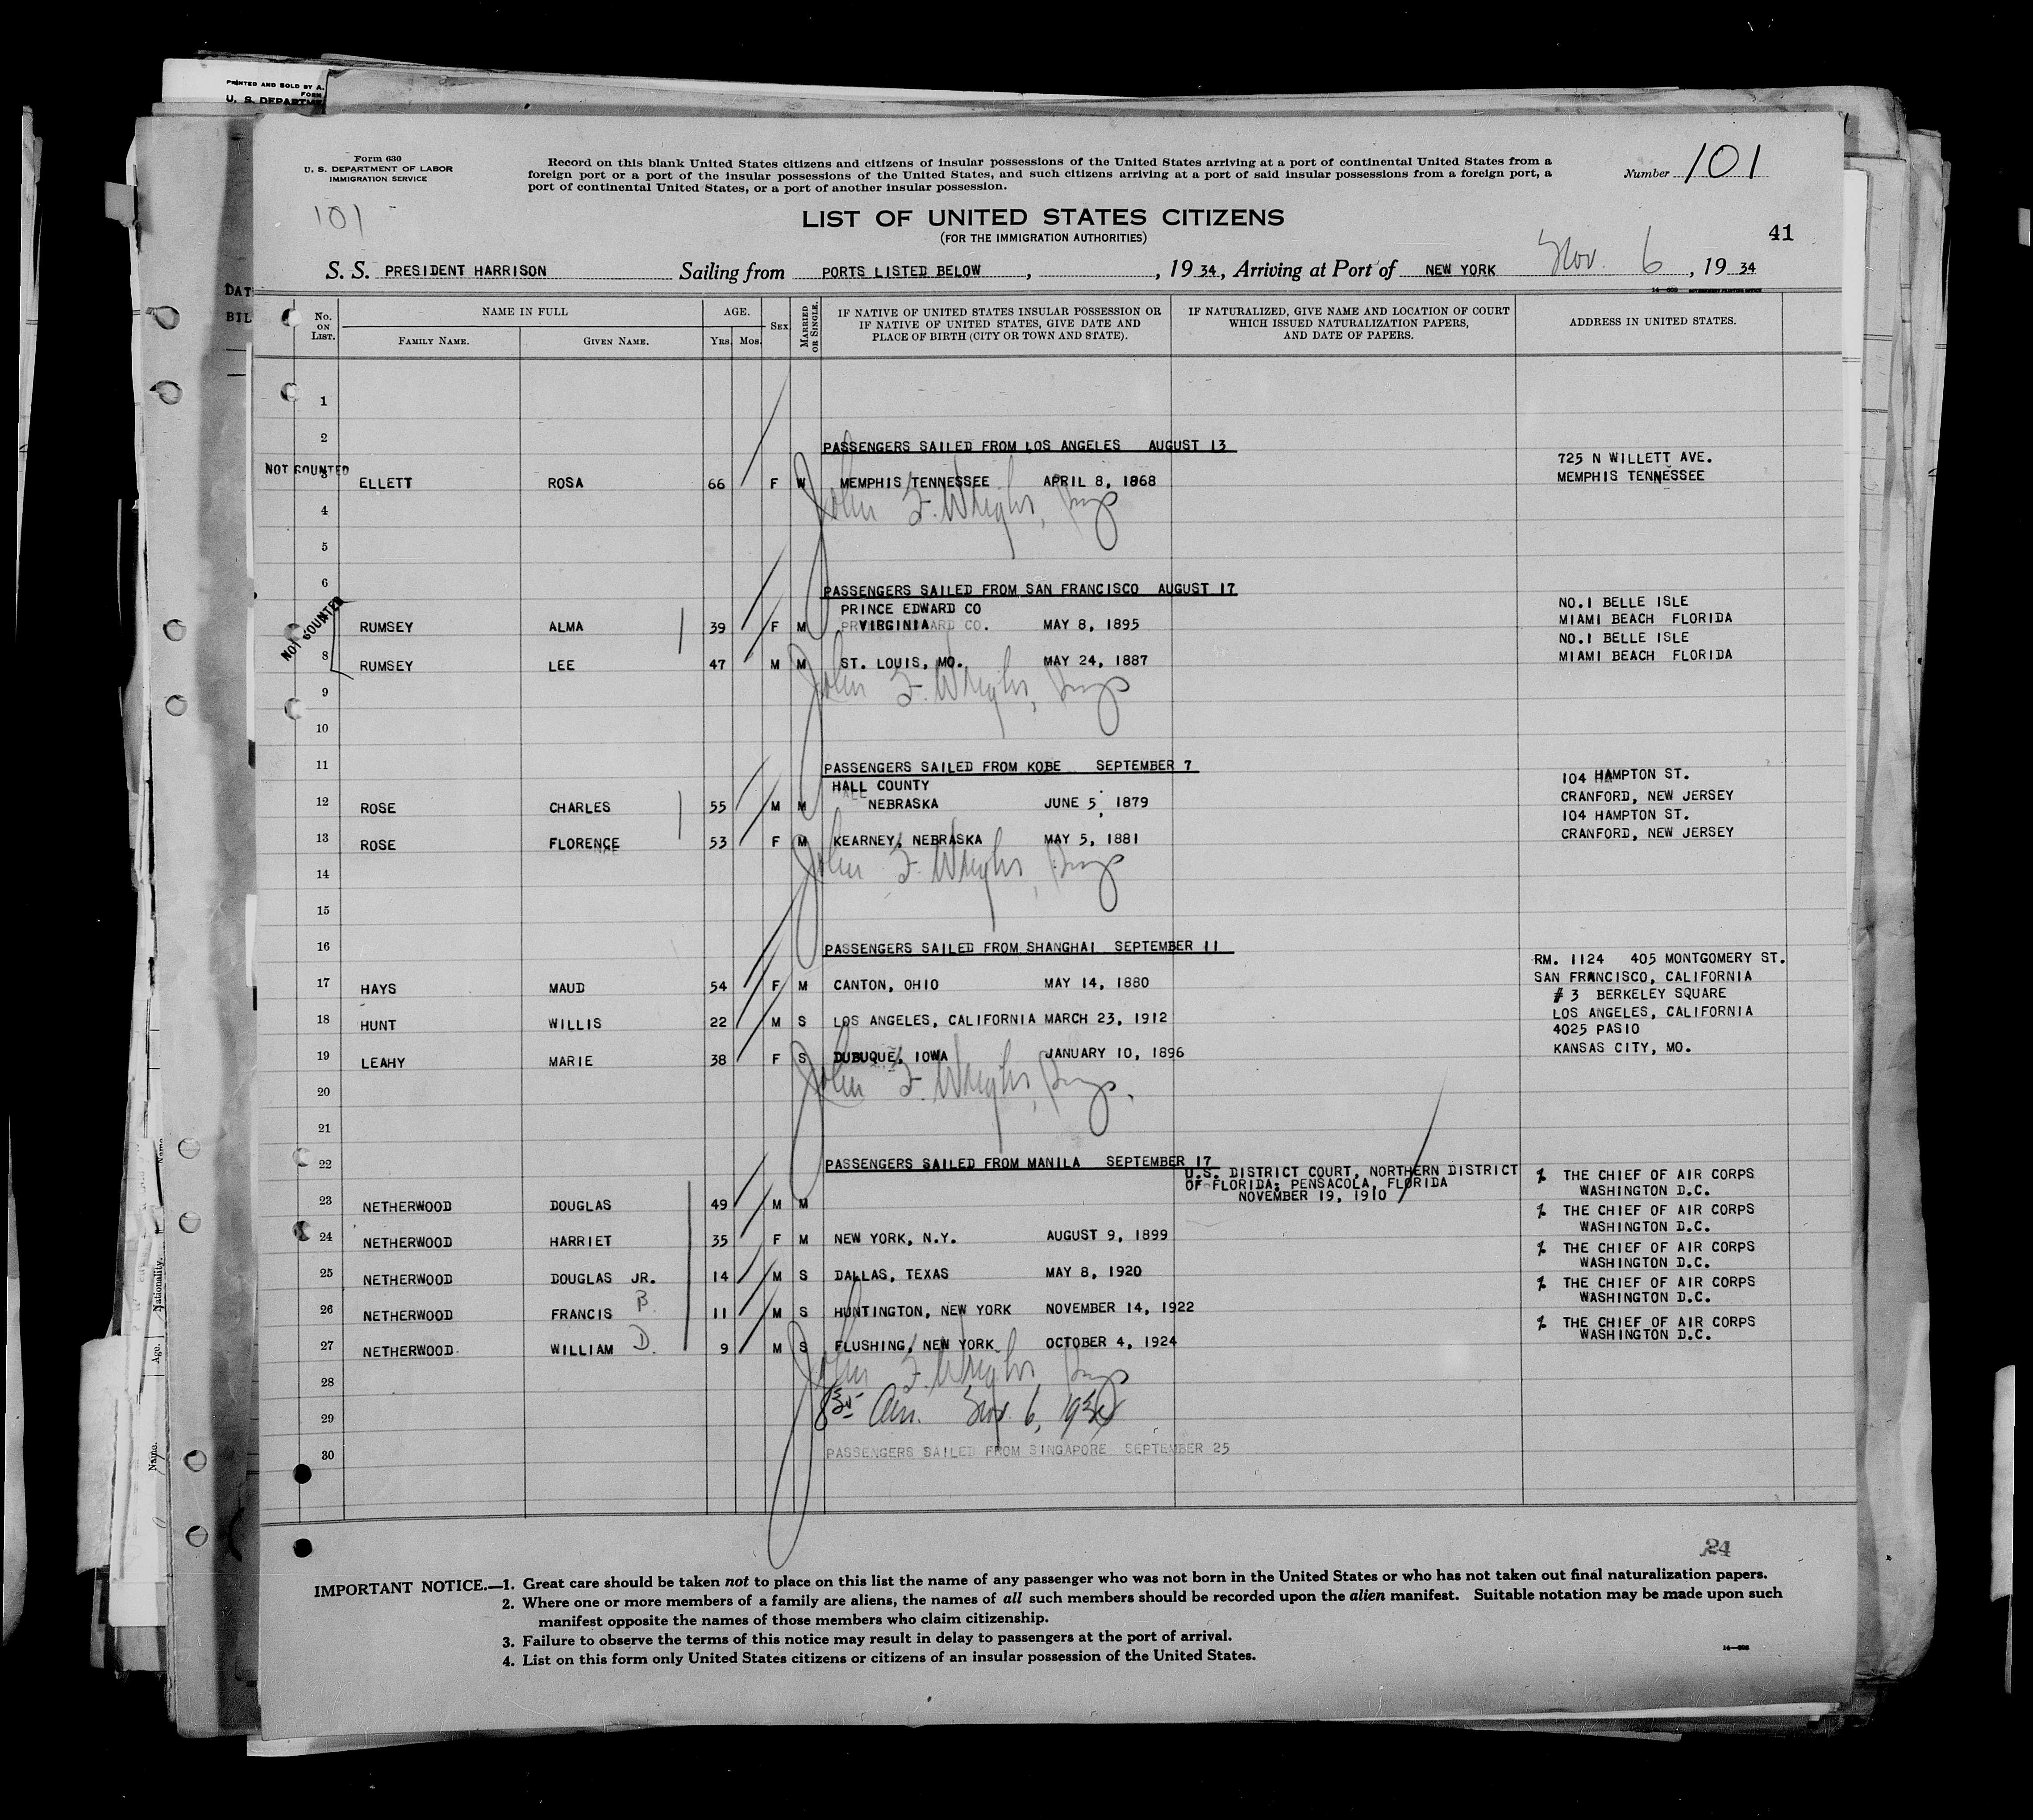 PRINTED AND SOLD BY A.
FORM
U. S. DEPARTME
Form 630
U. S. DEPARTMENT OF LABOR
IMMIGRATION SERVICE
Record on this blank United States citizens and citizens of insular possessions of the United States arriving at a port of continental United States from a
foreign port or a port of the insular possessions of the United States, and such citizens arriving at a port of said insular possessions from a foreign port, a
port of continental United States, or a port of another insular possession.
Number 101
101
LIST OF UNITED STATES CITIZENS
(FOR THE IMMIGRATION AUTHORITIES)
41
S. S. PRESIDENT HARRISON Sailing from PORTS LISTED BELOW , , 19 34, Arriving at Port of NEW YORK Nov. 6 , 19 34
DAT
BIL
No. ON LIST.
NAME IN FULL
FAMILY NAME. GIVEN NAME.
AGE.
YRS. MOS.
SEX
MARRIED OR SINGLE.
IF NATIVE OF UNITED STATES INSULAR POSSESSION OR
IF NATIVE OF UNITED STATES, GIVE DATE AND
PLACE OF BIRTH (CITY OR TOWN AND STATE).
IF NATURALIZED, GIVE NAME AND LOCATION OF COURT
WHICH ISSUED NATURALIZATION PAPERS,
AND DATE OF PAPERS.
ADDRESS IN UNITED STATES.
1
2 PASSENGERS SAILED FROM LOS ANGELES AUGUST 13
725 N WILLETT AVE.
NOT COUNTED
3 ELLETT ROSA 66 F W MEMPHIS TENNESSEE APRIL 8, 1868 MEMPHIS TENNESSEE
4 John F. Wright, Insp
5
6 PASSENGERS SAILED FROM SAN FRANCISCO AUGUST 17
PRINCE EDWARD CO NO.1 BELLE ISLE
NOT COUNTED
RUMSEY ALMA 39 F M VIRGINIA MAY 8, 1895 MIAMI BEACH FLORIDA
NO.1 BELLE ISLE
8 RUMSEY LEE 47 M M ST. LOUIS, MO. MAY 24, 1887 MIAMI BEACH FLORIDA
9 John F. Wright, Insp
10
11 PASSENGERS SAILED FROM KOBE SEPTEMBER 7
HALL COUNTY 104 HAMPTON ST.
12 ROSE CHARLES 55 M M NEBRASKA JUNE 5, 1879 CRANFORD, NEW JERSEY
104 HAMPTON ST.
13 ROSE FLORENCE 53 F M KEARNEY, NEBRASKA MAY 5, 1881 CRANFORD, NEW JERSEY
14 John F. Wright, Insp
15
16 PASSENGERS SAILED FROM SHANGHAI SEPTEMBER 11
RM. 1124 405 MONTGOMERY ST.
17 HAYS MAUD 54 F M CANTON, OHIO MAY 14, 1880 SAN FRANCISCO, CALIFORNIA
# 3 BERKELEY SQUARE
18 HUNT WILLIS 22 M S LOS ANGELES, CALIFORNIA MARCH 23, 1912 LOS ANGELES, CALIFORNIA
4025 PASIO
19 LEAHY MARIE 38 F S DUBUQUE, IOWA JANUARY 10, 1896 KANSAS CITY, MO.
20 John F. Wright, Insp.
21
22 PASSENGERS SAILED FROM MANILA SEPTEMBER 17
U.S. DISTRICT COURT, NORTHERN DISTRICT
OF FLORIDA; PENSACOLA, FLORIDA
NOVEMBER 19, 1910
% THE CHIEF OF AIR CORPS
WASHINGTON D.C.
23 NETHERWOOD DOUGLAS 49 M M
% THE CHIEF OF AIR CORPS
WASHINGTON D.C.
24 NETHERWOOD HARRIET 35 F M NEW YORK, N.Y. AUGUST 9, 1899
% THE CHIEF OF AIR CORPS
WASHINGTON D.C.
25 NETHERWOOD DOUGLAS JR. 14 M S DALLAS, TEXAS MAY 8, 1920
% THE CHIEF OF AIR CORPS
WASHINGTON D.C.
26 NETHERWOOD FRANCIS B. 11 M S HUNTINGTON, NEW YORK NOVEMBER 14, 1922
% THE CHIEF OF AIR CORPS
WASHINGTON D.C.
27 NETHERWOOD WILLIAM D. 9 M S FLUSHING, NEW YORK OCTOBER 4, 1924
28 John F. Wright, Insp
29 Nov. 6, 1934
30 PASSENGERS SAILED FROM SINGAPORE SEPTEMBER 25
24
IMPORTANT NOTICE.—1. Great care should be taken not to place on this list the name of any passenger who was not born in the United States or who has not taken out final naturalization papers.
2. Where one or more members of a family are aliens, the names of all such members should be recorded upon the alien manifest. Suitable notation may be made upon such
manifest opposite the names of those members who claim citizenship.
3. Failure to observe the terms of this notice may result in delay to passengers at the port of arrival.
4. List on this form only United States citizens or citizens of an insular possession of the United States.